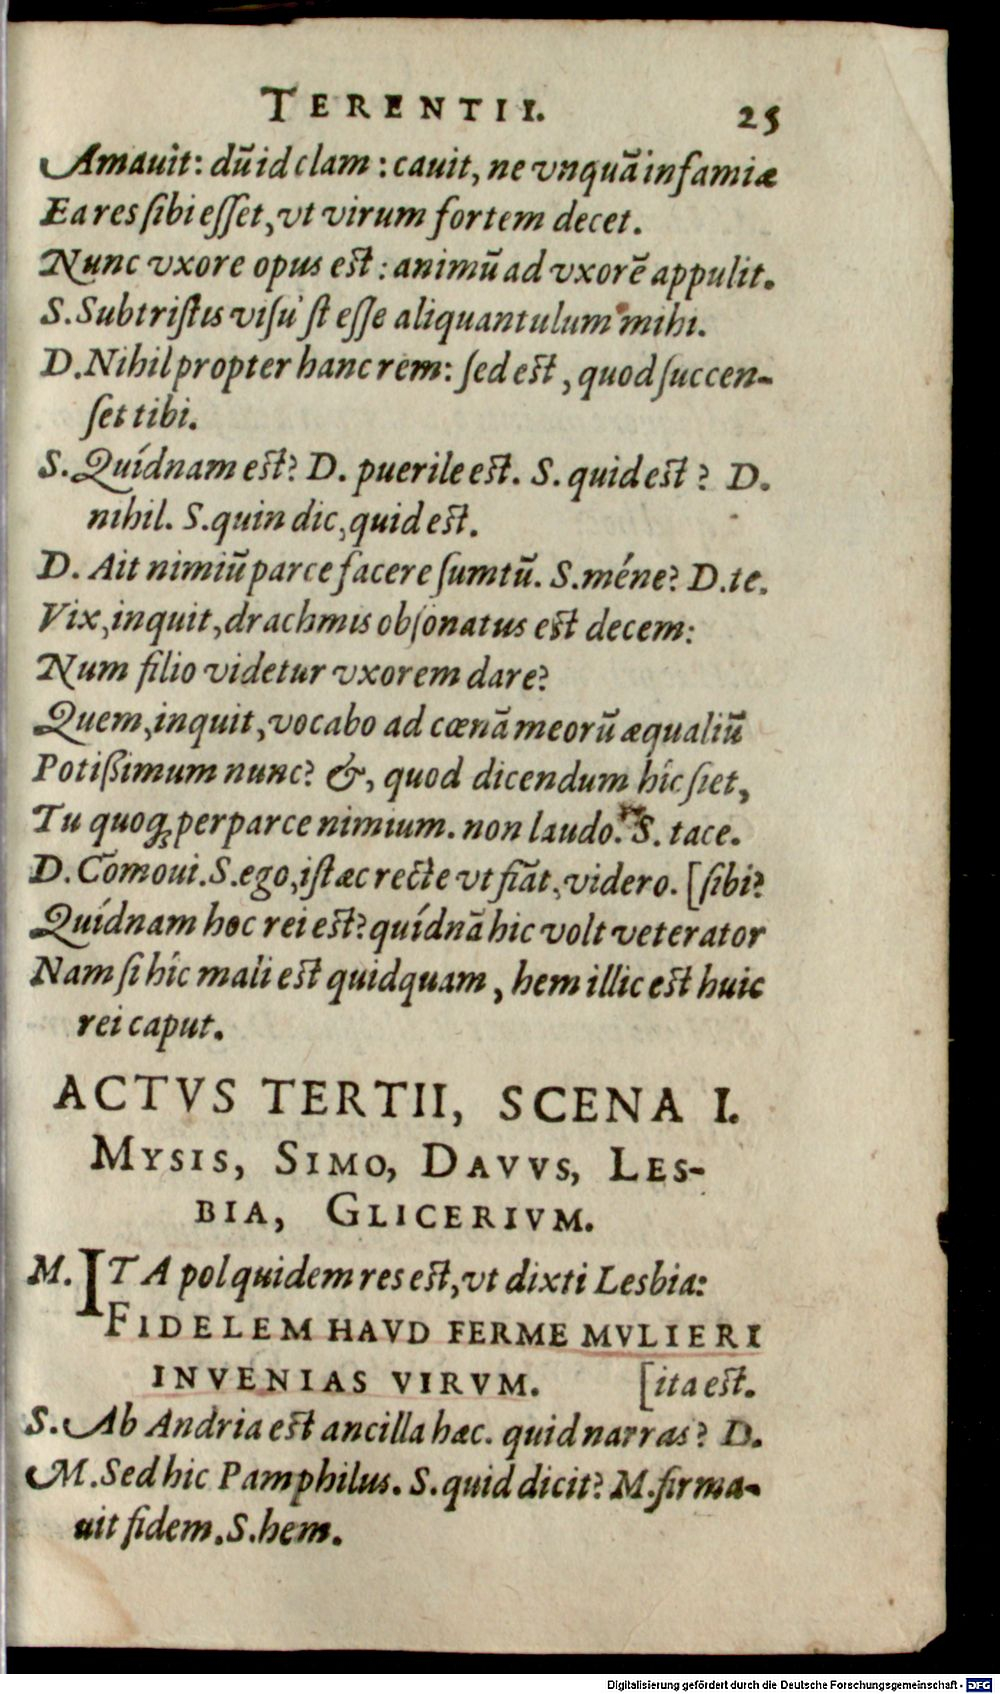 TERENTII. 25
Amauit: dũ id clam: cauit, ne vnquã infamiæ
Ea res sibi esset, vt virum fortem decet.
Nunc vxore opus est: animũ ad vxorẽ appulit.
S. Subtristis visu'st esse aliquantulum mihi.
D. Nihil propter hanc rem: sed est, quod succen-
set tibi.
S. Quídnam est? D. puerile est. S. quid est? D.
nihil. S. quin dic, quid est.
D. Ait nimiũ parce facere sumtũ. S. méne? D. te.
Vix, inquit, drachmis obsonatus est decem:
Num filio videtur vxorem dare?
Quem, inquit, vocabo ad cœnã meorũ æqualiũ
Potißimum nunc? &, quod dicendum hîc siet,
Tu quoq; perparce nimium. non laudo. S. tace.
D. Cõmoui. S. ego, istæc recte vt fiãt, videro. [sibi?
Quídnam hoc rei est? quídnã hic volt veterator
Nam si hîc mali est quidquam, hem illic est huic
rei caput.
ACTVS TERTII, SCENA I.
MYSIS, SIMO, DAVVS, LES-
BIA, GLICERIVM.
M. ITA pol quidem res est, vt dixti Lesbia:
FIDELEM HAVD FERME MVLIERI
INVENIAS VIRVM. [ita est.
S. Ab Andria est ancilla hæc. quid narras? D.
M. Sed hic Pamphilus. S. quid dicit? M. firma-
uit fidem. S. hem.
Digitalisierung gefördert durch die Deutsche Forschungsgemeinschaft - DFG